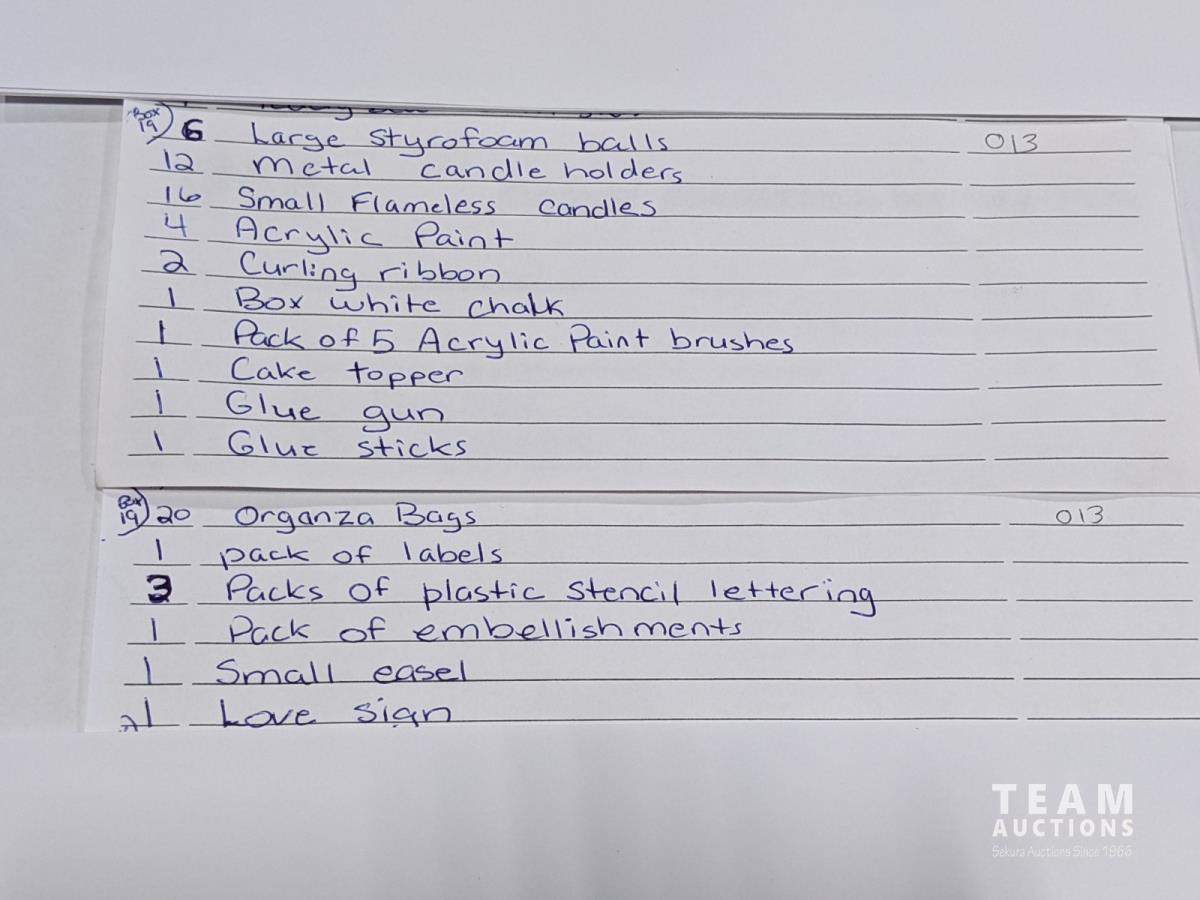 Box 19) 6 Large Styrofoam balls 013
12 Metal candle holders
16 Small Flameless candles
4 Acrylic Paint
2 Curling ribbon
1 Box white chalk
1 Pack of 5 Acrylic Paint brushes
1 Cake topper
1 Glue gun
1 Glue sticks
Box 19) 20 Organza Bags 013
1 pack of labels
3 Packs of plastic stencil lettering
1 Pack of embellishments
1 Small easel
1 Love sign
TEAM
AUCTIONS
Sekura Auctions Since 1966